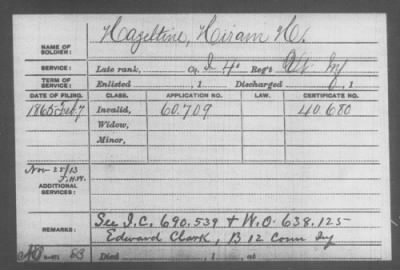 NAME OF SOLDIER: Hazeltine, Hiram H.
SERVICE: Late rank, Co. I 4" Reg't Vt. Inf
TERM OF SERVICE: Enlisted , 1 Discharged , 1
DATE OF FILING. CLASS. APPLICATION NO. LAW. CERTIFICATE NO.
1865 Feb 7 Invalid, 60.709 40.680
Widow,
Minor,
Nov 25/13
ADDITIONAL SERVICES:
See I.C. 690.539 + W.O. 638.125
Edward Clark, B 12 Conn Inf
Died , 1 , at